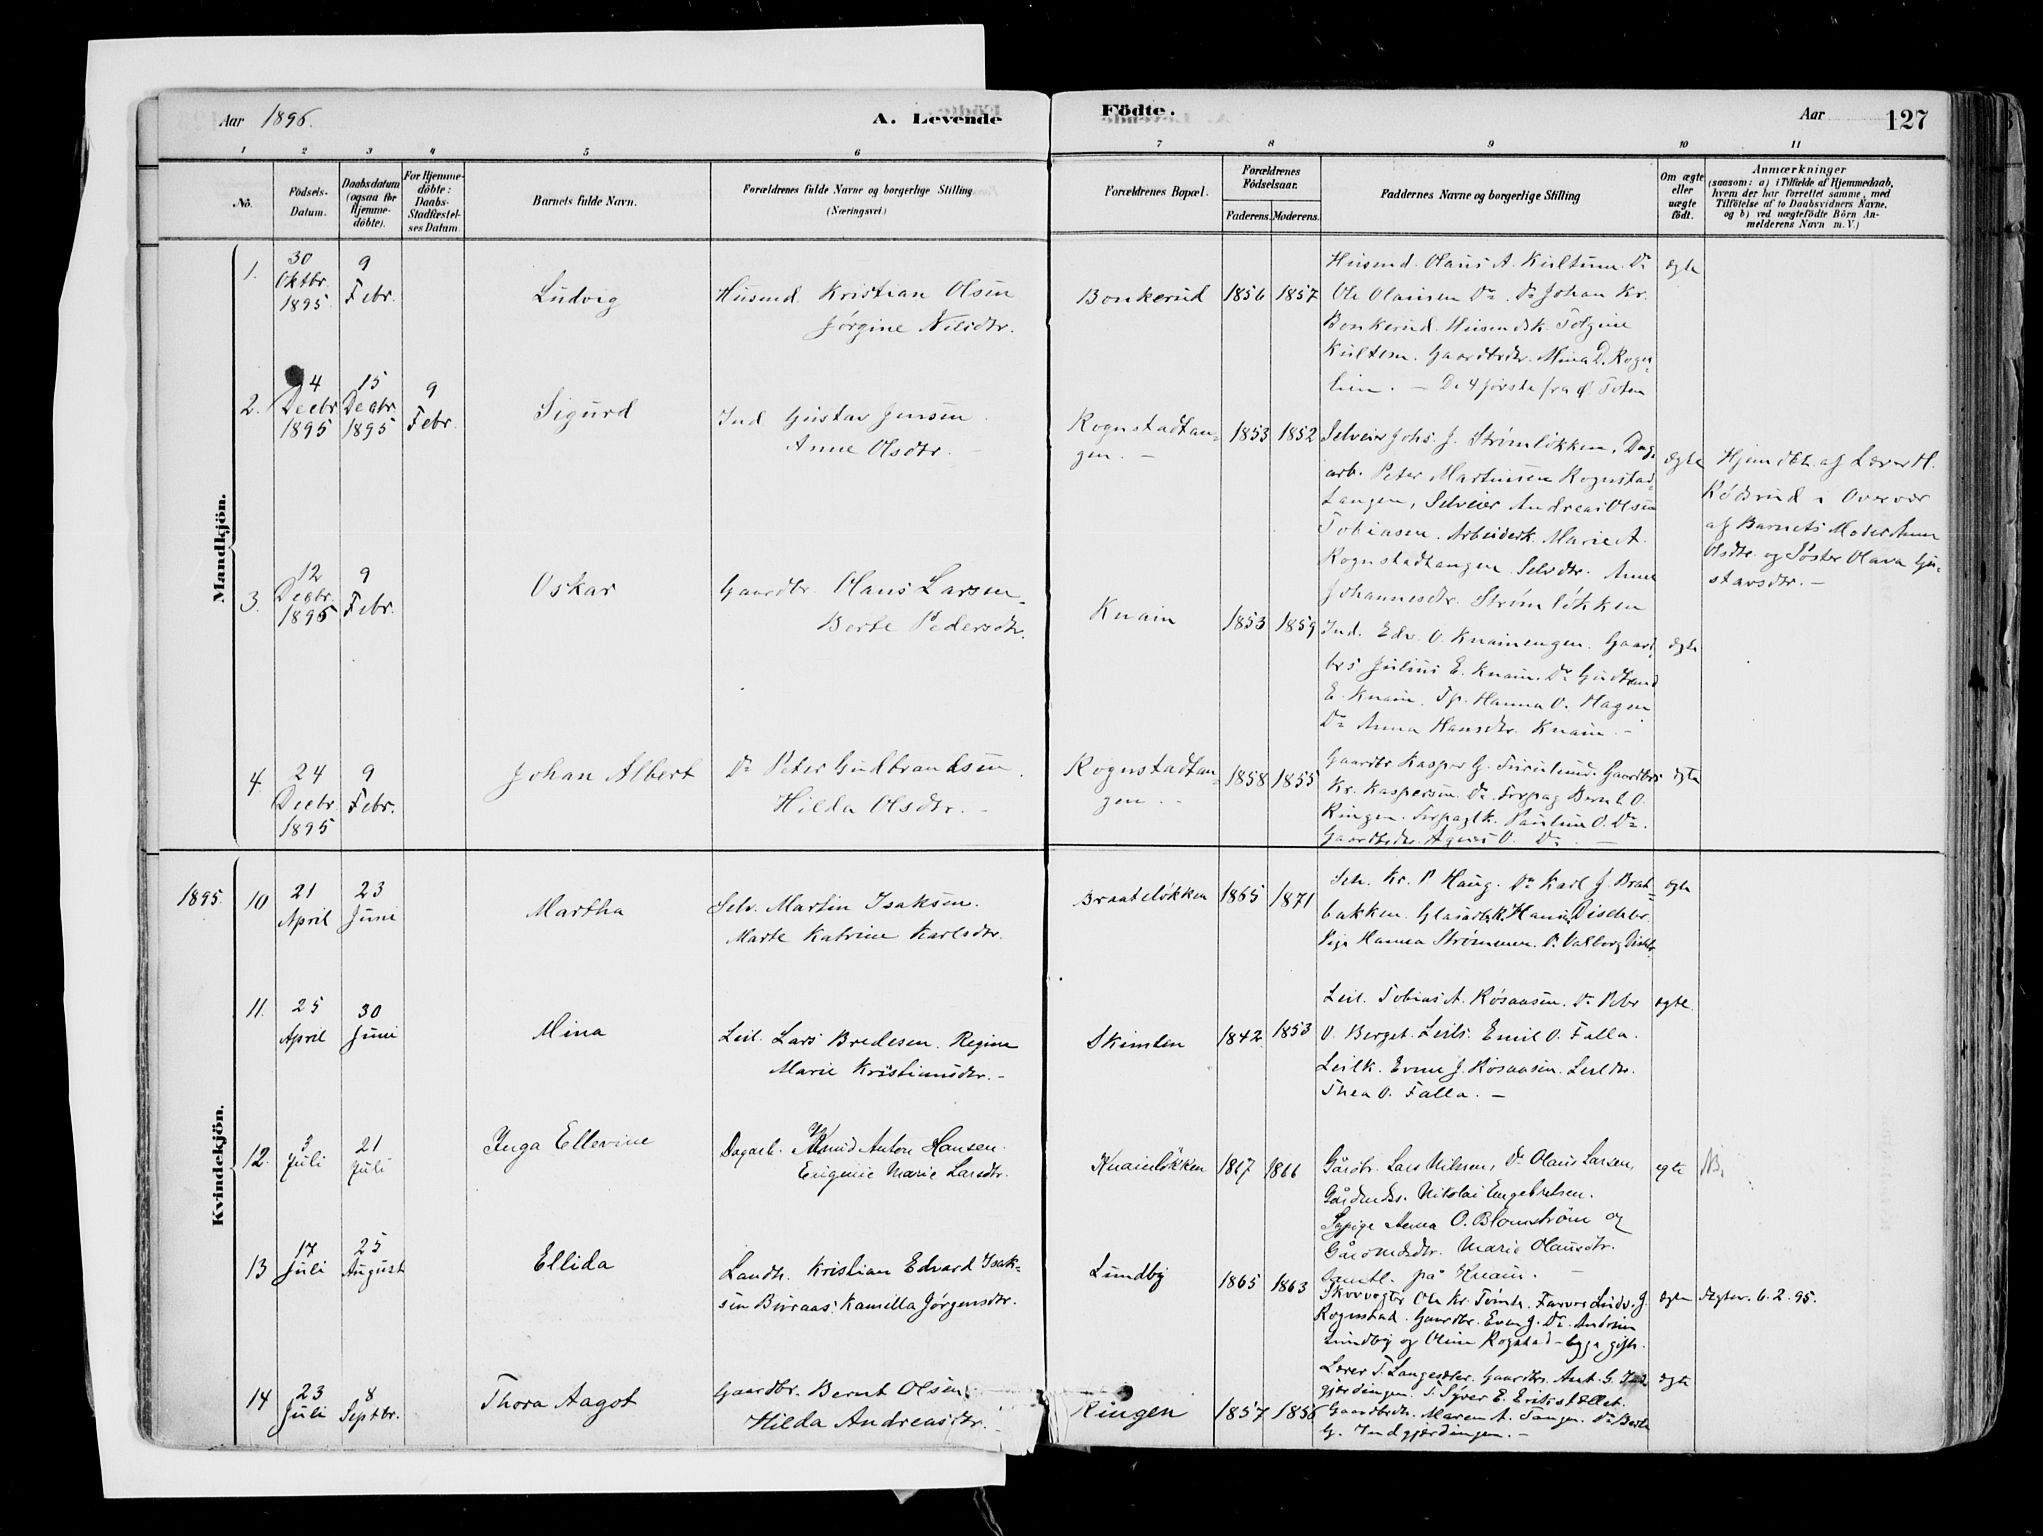 Aar 1896.
A. Levende
Födte.
Aar
127
1 2 3 4 5 6 7 8 9 10 11
No.
Födsels-Datum.
Daabsdatum (ogsaa for Hjemme-döbte).
For Hjemme-döbte: Daabs-Stadfæstel-ses Datum.
Barnets fulde Navn.
Forældrenes fulde Navne og borgerlige Stilling
(Næringsvei)
Forældrenes Bopæl.
Forældrenes Födselsaar.
Faderens. Moderens.
Faddernes Navne og borgerlige Stilling
Om ægte eller uægte födt.
Anmærkninger
(saasom: a) i Tilfælde af Hjemmedaab,
hvem der har forrettet samme, med
Tilföielse af to Daabsvidners Navne,
og b) ved uægtefödte Börn An-
melderens Navn m.V.)
Mandkjön.
1. 30 Oktbr. 1895 9 Febr. Ludvig
Husmd. Kristian Olsen
Jørgine Nilsdtr.
Bonkerud 1856 1857
Husmd. Olaus A. Kultum. Do
Ole Olausen Do. Do Johan Kr.
Bonkerud. Husmdsk.
Kultum. Gaardbrdtr. Mina D. Rogne-
lien. — De 4 første fra Ø. Toten
ægte
2. 4 Decbr 1895 15 Decbr. 1895 9 Febr. Sigurd
Ind. Gustav Jensen
Anne Olsdtr. —
Rognstadtan-
gen. —
1853 1852
Selveier Johs. J. Strømløkken, Dag-
arb. Peter Martinsen Rognstad-
tangen, Selveier Andreas Olsen
Tobiasen. Arbeiderk. Marie A.
Rognstadtangen. Selvdtr. Anne
Johannesdtr. Strømløkken
ægte
Hjemdbt. af Lærer H.
Rødsrud i Overvær
af Barnets Moder Anne
Olsdtr. og Søster Olava Gu-
stavsdtr. —
3. 12 Decbr. 1895 9 Febr. Oskar
Gaardbr. Olaus Larsen
Berte Pedersdtr.
Knain 1853 1859
Ind. Edv. O. Knainengen. Gaard-
brs Julius E. Knain. Do Gudbrand
E. Knain. Tp. Hanna O. Hagen
Do Anna Hansdtr. Knain. —
ægte
4. 24 Decbr. 1895 9 Febr. Johan Albert
Do Peter Gudbrandsen
Hilda Olsdtr. —
Rognstadtan-
gen. —
1858 1855
Gaardbr Kasper G. Gaardbrs
Kr. Kaspersen. Do. Bernt O.
Ringen. Pauline O. Do.
Gaardbrdtr. Agnes O. Do. —
ægte
Kvindekjön.
1895. 10 21 April 23 Juni Martha
Selv. Martin Isaksen.
Marte Katrine Karlsdtr.
Braateløkken 1865 1871
Selv. Kr. P. Haug. Do Karl J. Brat-
bakken. Glasarbk. Disethbr.
Pige Hanna Strømmen. Do Valborg
ægte
11. 25 April 30 Juni Mina
Leil. Lars Bredesen. Regine
Marie Kristiansdtr. —
Skimlen 1842. 1853
Leil. Tobias A. Røsaasen. Do Peter
O. Berget. Leils. Emil O. Falla.
Leilk. Evine J. Røsaasen. Leildtr.
Thea O. Falla. —
ægte.
12. 3 Juli 21 Juli Inga Ellevine
Dagarb. Anton Hansen.
Eugenie Marie Larsdtr.
Knainløkken 1867 1866
Gårdbr. Lars Nilsen, Do Olaus Larsen,
Gårdmds. Nikolai Engebretsen.
Sypige Anna O. Blomstrøm og
Gårdmdsdtr. Marie Olausdtr.
samtl. på Knain. —
egte
13 17 Juli 25 August Ellida
Landh. Kristian Edvard Isak-
sen Buraas: Kamilla Jørgensdtr.
Lundby 1865 1863
Skovvogter Ole Kr. Tømte. Ludv. J.
Rognstad. Gaardbr. Even J. Do. Andrine
Lundby og Oline Rognstad — begge gifte.
ægte
Ægtev. 6. 2. 95.
14 23 Juli 8 Septbr. Thora Aagot
Gaardbr. Bernt Olsen
Hilda Andreasdtr. —
Ringen 1857 1856
Lærer T. Langsæter. Gaardbr. Ant. G. Ind-
gjerdingen. T. Syver E. Erikstellet.
Gaardbrdtr. Maren A. Tangen. Do Berte
G. Indgjerdingen. —
ægte